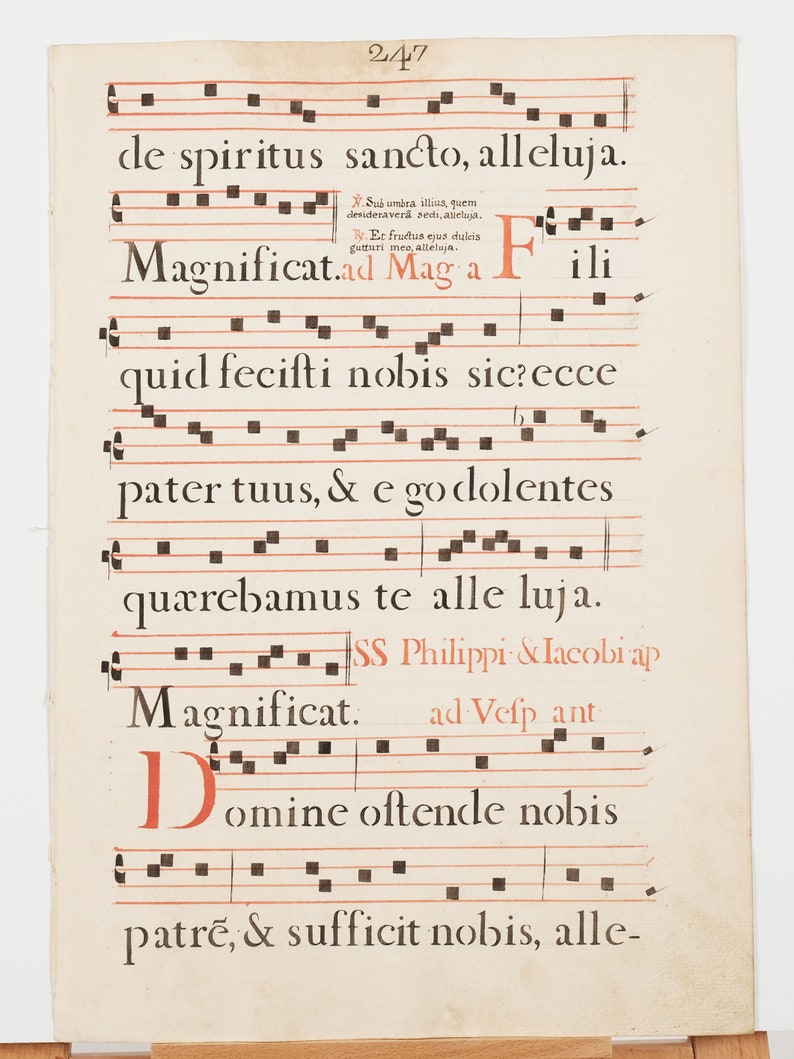 247
de spiritus sancto, alleluja.
℣. Sub umbra illius, quem
desideraverã sedi, alleluja.
℟. Et fructus ejus dulcis
gutturi meo, alleluja.
Magnificat. ad Mag a Fili
quid feciſti nobis sic? ecce
pater tuus, & ego dolentes
quærebamus te alleluja.
SS Philippi & Iacobi ap
Magnificat. ad Veſp ant
Domine oſtende nobis
patrẽ, & sufficit nobis, alle-